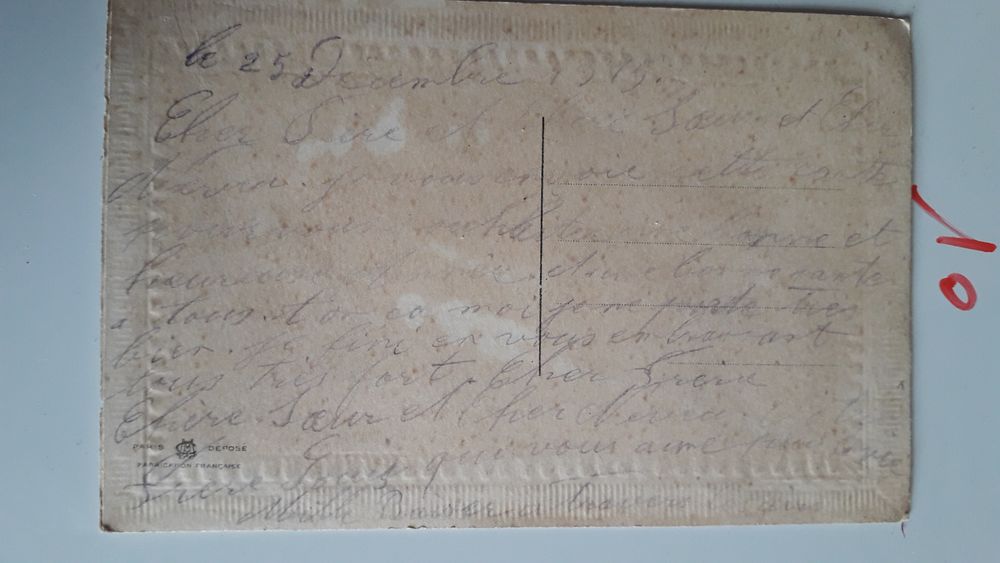 le 25 Décembre 1915
Cher Frère et Chère Sœur et Cher
je vous envoie cette carte
pour vous souhaiter une bonne et
heureuse année et une bonne santé
a tous. t'en ca moi je me porte très
bien. Je fini en vous embrassant
tous très fort. Cher Frère
Chère Sœur et Cher
qui vous aime
Frère Louis
Mille Baiser a travers
PARIS DEPOSÉ
FABRICATION FRANÇAISE
10